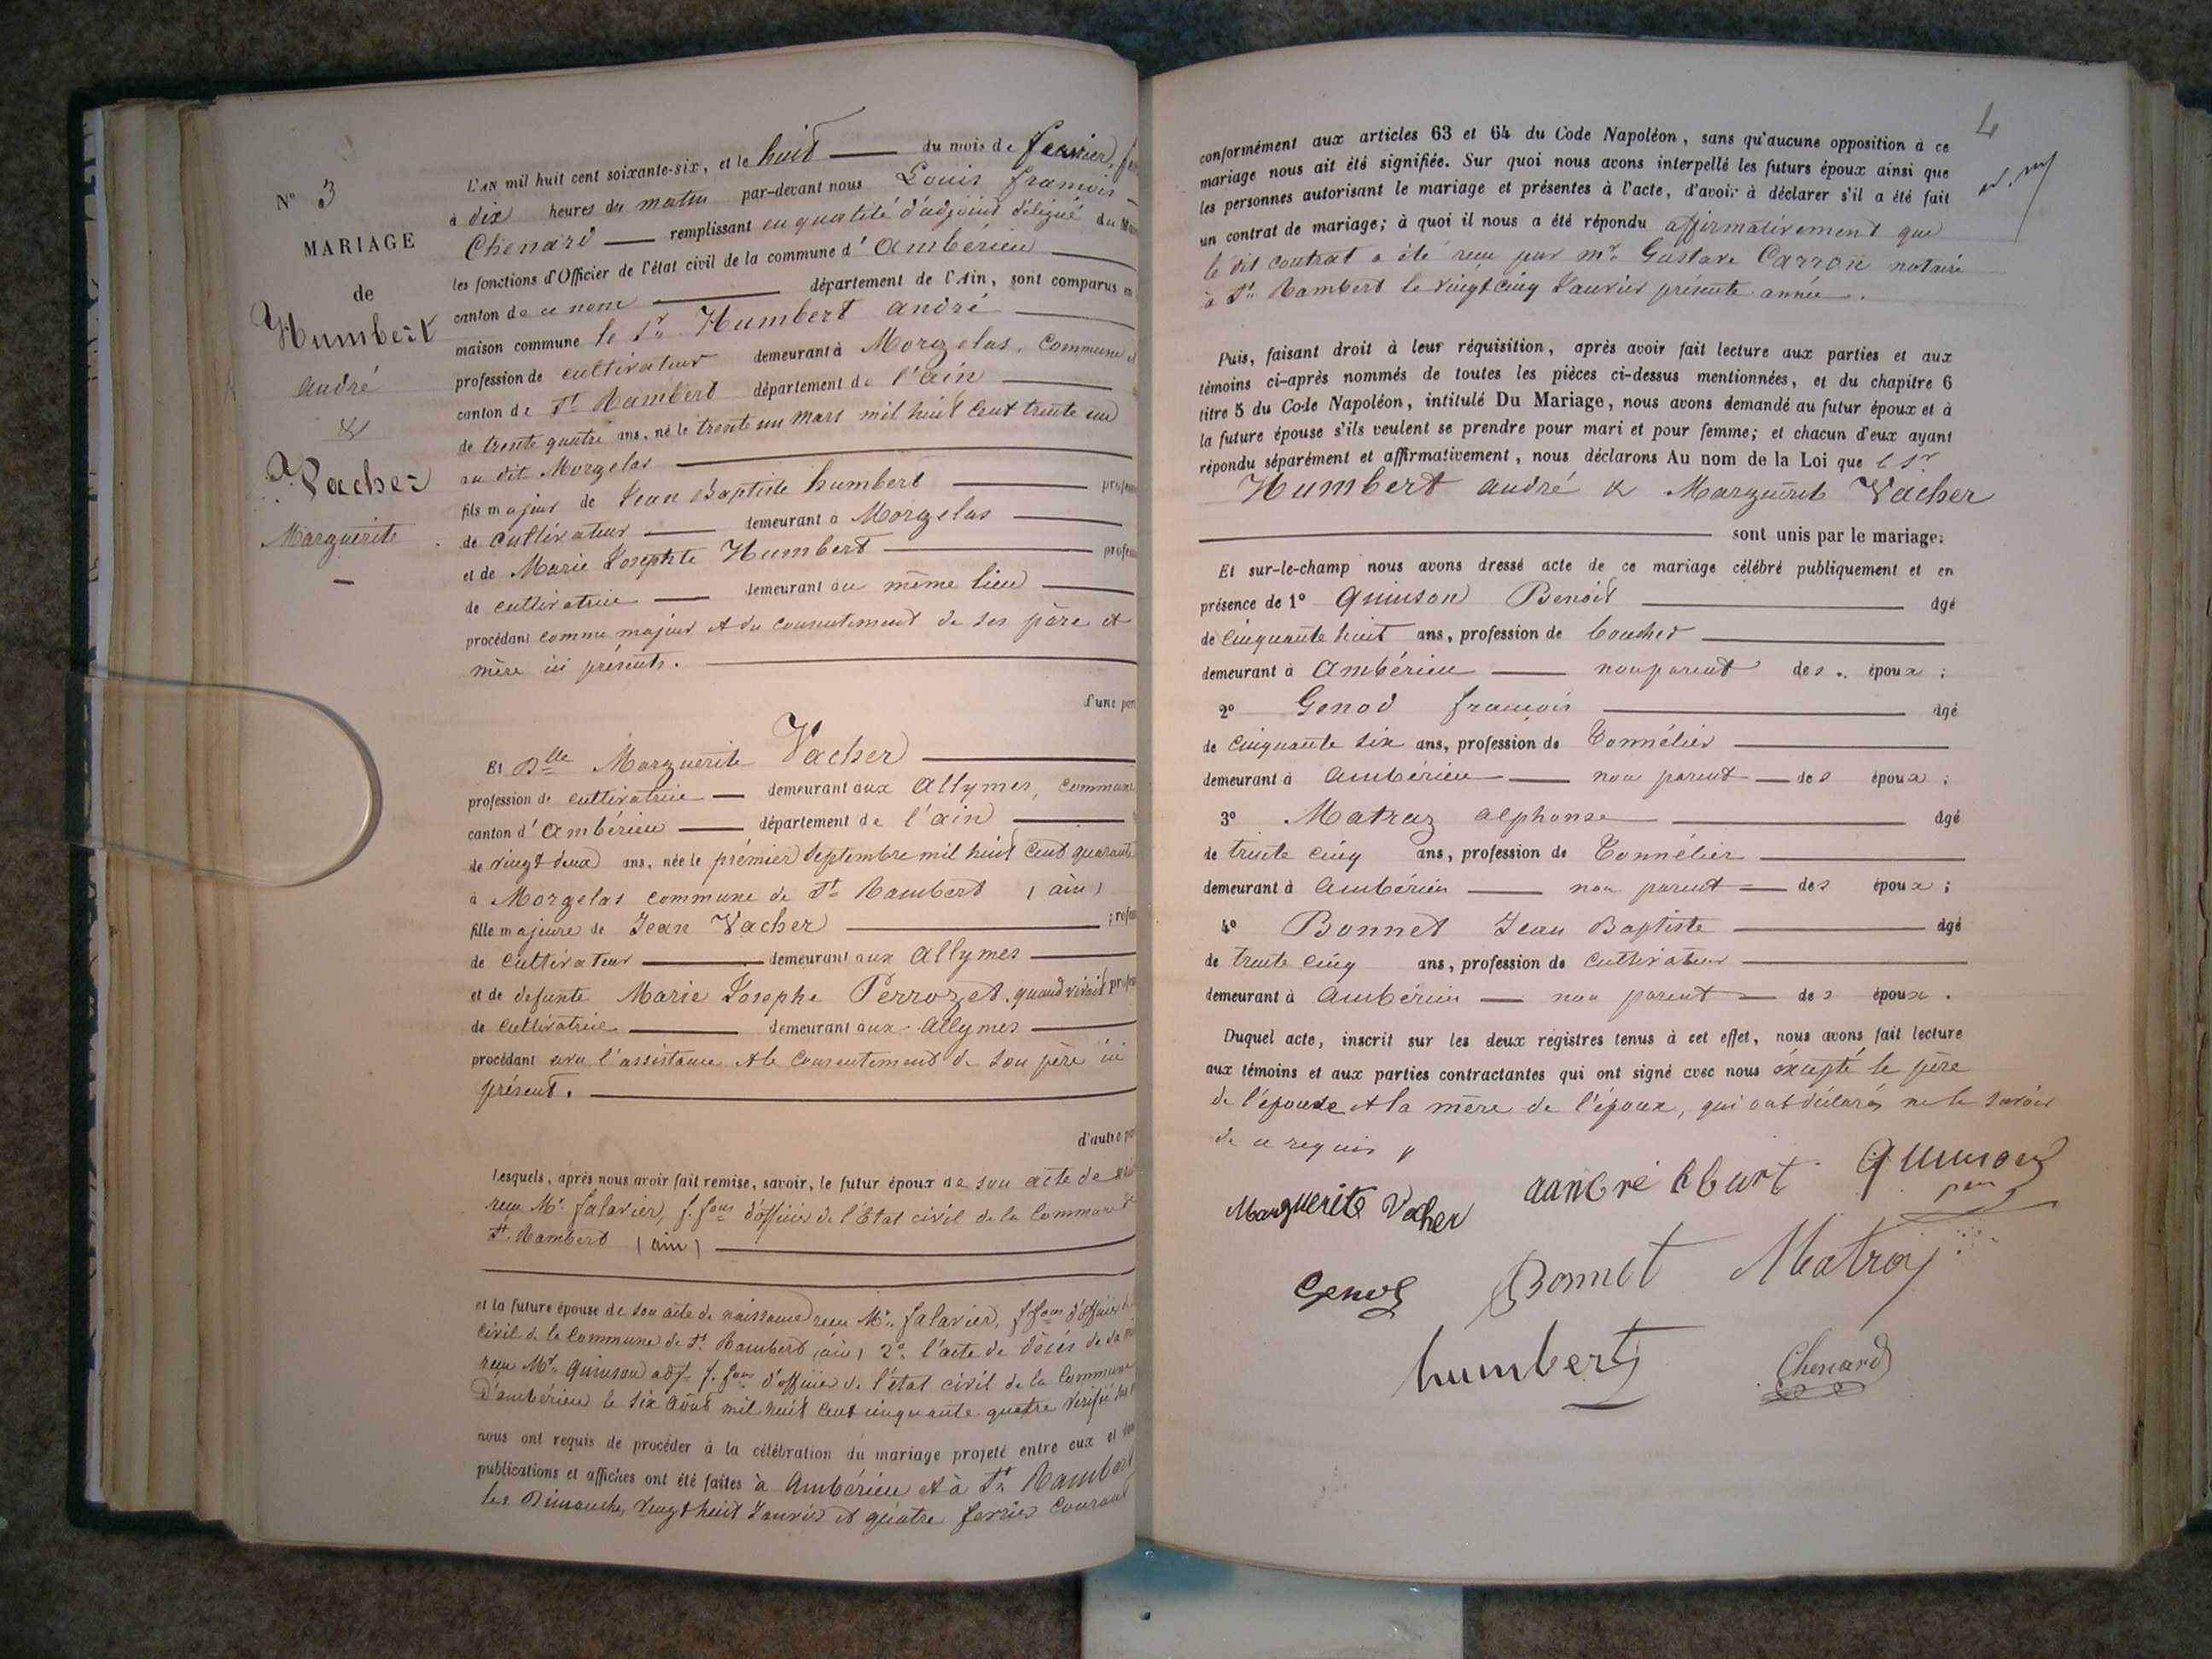 N° 3
MARIAGE
de
Humbert
André
&
Vacher
Marguerite
L'AN mil huit cent soixante-six, et le huit du mois de février,
à dix heures du matin par-devant nous Louis françois
Chenard remplissant en qualité d'adjoint délégué du
les fonctions d'Officier de l'état civil de la commune d' Ambérieu
canton de ce nom département de l'Ain, sont comparus en
maison commune le Sr Humbert andré
profession de cultivateur demeurant à Morgelas, Commune
canton de St Rambert département de l'ain
de trente quatre ans, né le trente un mars mil huit cent trente un
au dit Morgelas
fils majeur de Jean Baptiste humbert
de cultivateur demeurant à Morgelas
et de Marie Josephte Humbert
de cultivatrice demeurant au même lieu
procédant comme majeur et du consentement de ses père et
mère ici présents.
d'une part
Et Dlle Marguerite Vacher
profession de cultivatrice demeurant aux allymes, commune
canton d' ambérieu département de l'ain
de vingt deux ans, née le prémier Septembre mil huit cent quarante
à Morgelas commune de St Rambert (ain)
fille majeure de Jean Vacher
de cultivateur demeurant aux allymes
et de défunte Marie Josephe Perrozet, quand vivait
de cultivatrice demeurant aux allymes
procédant sous l'assistance et le consentement de son père ici
présent.
d'autre part
Lesquels, après nous avoir fait remise, savoir, le futur époux de son acte de
reçu Mr falavier, f. fons d'officier de l'état civil de la Commune de
St Rambert (ain)
et la future épouse de son acte de naissance reçu Mr falavier, f. fons d'officier
civil de la Commune de St Rambert (ain) 2° l'acte de décès de sa
reçu Mr Quinson adjt f. fons d'officier de l'état civil de la Commune
D'ambérieu le six août mil huit cent cinquante quatre vérifié
nous ont requis de procéder à la célébration du mariage projeté entre eux et
publications et affiches ont été faites à Ambérieu et à St Rambert
les Dimanches vingt huit Janvier et quatre février courant
4
conformément aux articles 63 et 64 du Code Napoléon, sans qu'aucune opposition à ce
mariage nous ait été signifiée. Sur quoi nous avons interpellé les futurs époux ainsi que
les personnes autorisant le mariage et présentes à l'acte, d'avoir à déclarer s'il a été fait
un contrat de mariage; à quoi il nous a été répondu affirmativement que
le dit contrat a été reçu par mr Gustave Carron notaire
à St Rambert le vingt cinq Janvier présente année.
Puis, faisant droit à leur réquisition, après avoir fait lecture aux parties et aux
témoins ci-après nommés de toutes les pièces ci-dessus mentionnées, et du chapitre 6
titre 5 du Code Napoléon, intitulé Du Mariage, nous avons demandé au futur époux et à
la future épouse s'ils veulent se prendre pour mari et pour femme; et chacun d'eux ayant
répondu séparément et affirmativement, nous déclarons Au nom de la Loi que le Sr
Humbert andré & Marguerite Vacher
sont unis par le mariage.
Et sur-le-champ nous avons dressé acte de ce mariage célébré publiquement et en
présence de 1° Quinson Benoit âgé
de cinquante huit ans, profession de boucher
demeurant à Ambérieu non parent des époux ;
2° Genod françois âgé
de cinquante six ans, profession de Tonnélier
demeurant à ambérieu non parent des époux ;
3° Matraz alphonse âgé
de trente cinq ans, profession de Tonnélier
demeurant à Ambérieu non parent des époux ;
4° Bonnet Jean Baptiste âgé
de trente cinq ans, profession de cultivateur
demeurant à ambérieu non parent des époux.
Duquel acte, inscrit sur les deux régistres tenus à cet effet, nous avons fait lecture
aux témoins et aux parties contractantes qui ont signé avec nous éxcepté le père
de l'épouse et la mère de l'époux, qui ont déclarés ne le savoir
de ce requis
Marguerite Vacher
Quinson
Genod Bonnet Matray
humbert Chenard